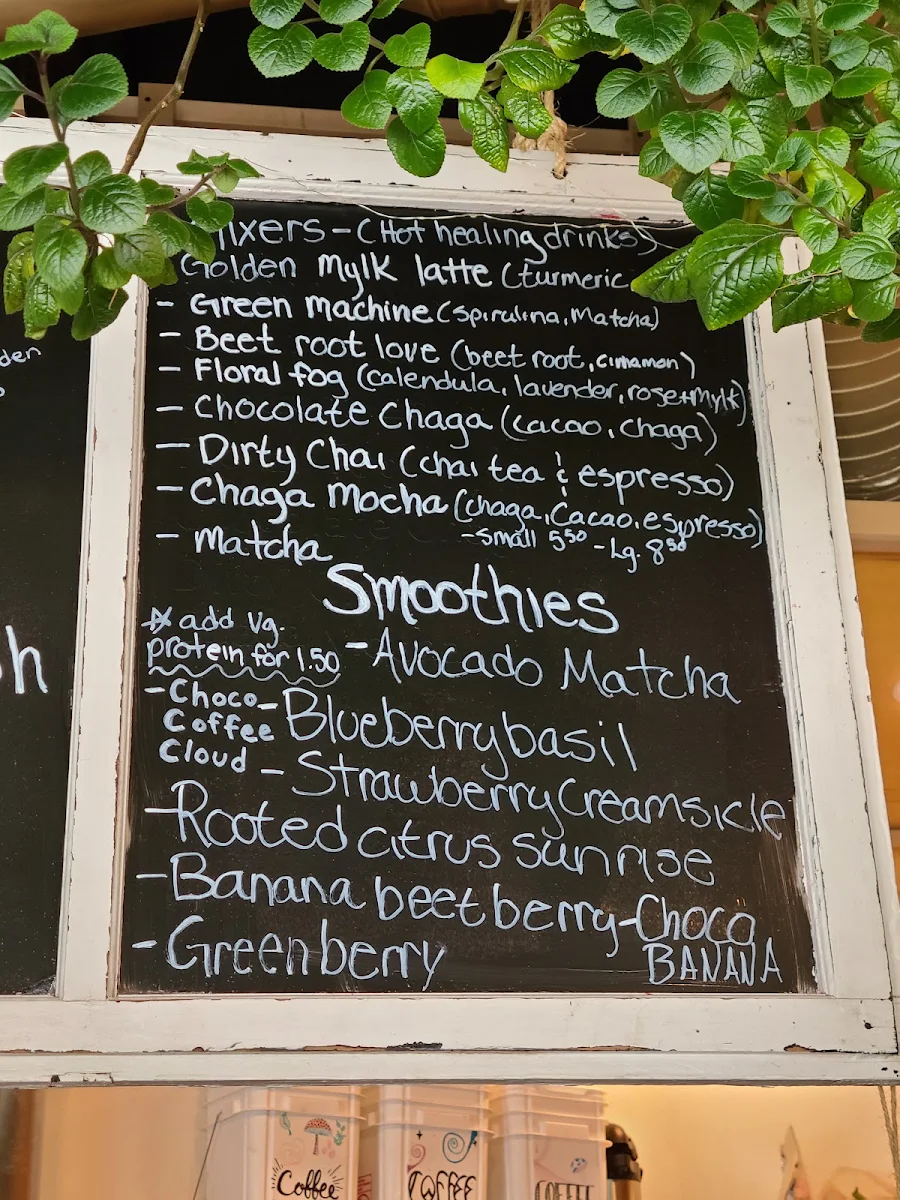 den
ixers - (Hot healing drinks)
Golden Mylk latte (turmeric
- Green Machine (spirulina, Matcha)
- Beet root love (beet root, cinnamon)
- Floral fog (calendula, lavender, rose+mylk)
- Chocolate Chaga (cacao, chaga)
- Dirty Chai (chai tea & espresso)
- Chaga Mocha (chaga, Cacao, espresso)
- small 5.50 - Lg. 8.50
- Matcha
Smoothies
* add vg.
protein for 1.50
- Avocado Matcha
- Choco
Coffee
Cloud
- Blueberry basil
- Strawberry Creamsicle
- Rooted citrus sunrise
- Banana beet berry
- Choco
BANANA
- Greenberry
h
Coffee
COFFEE
COFFEE